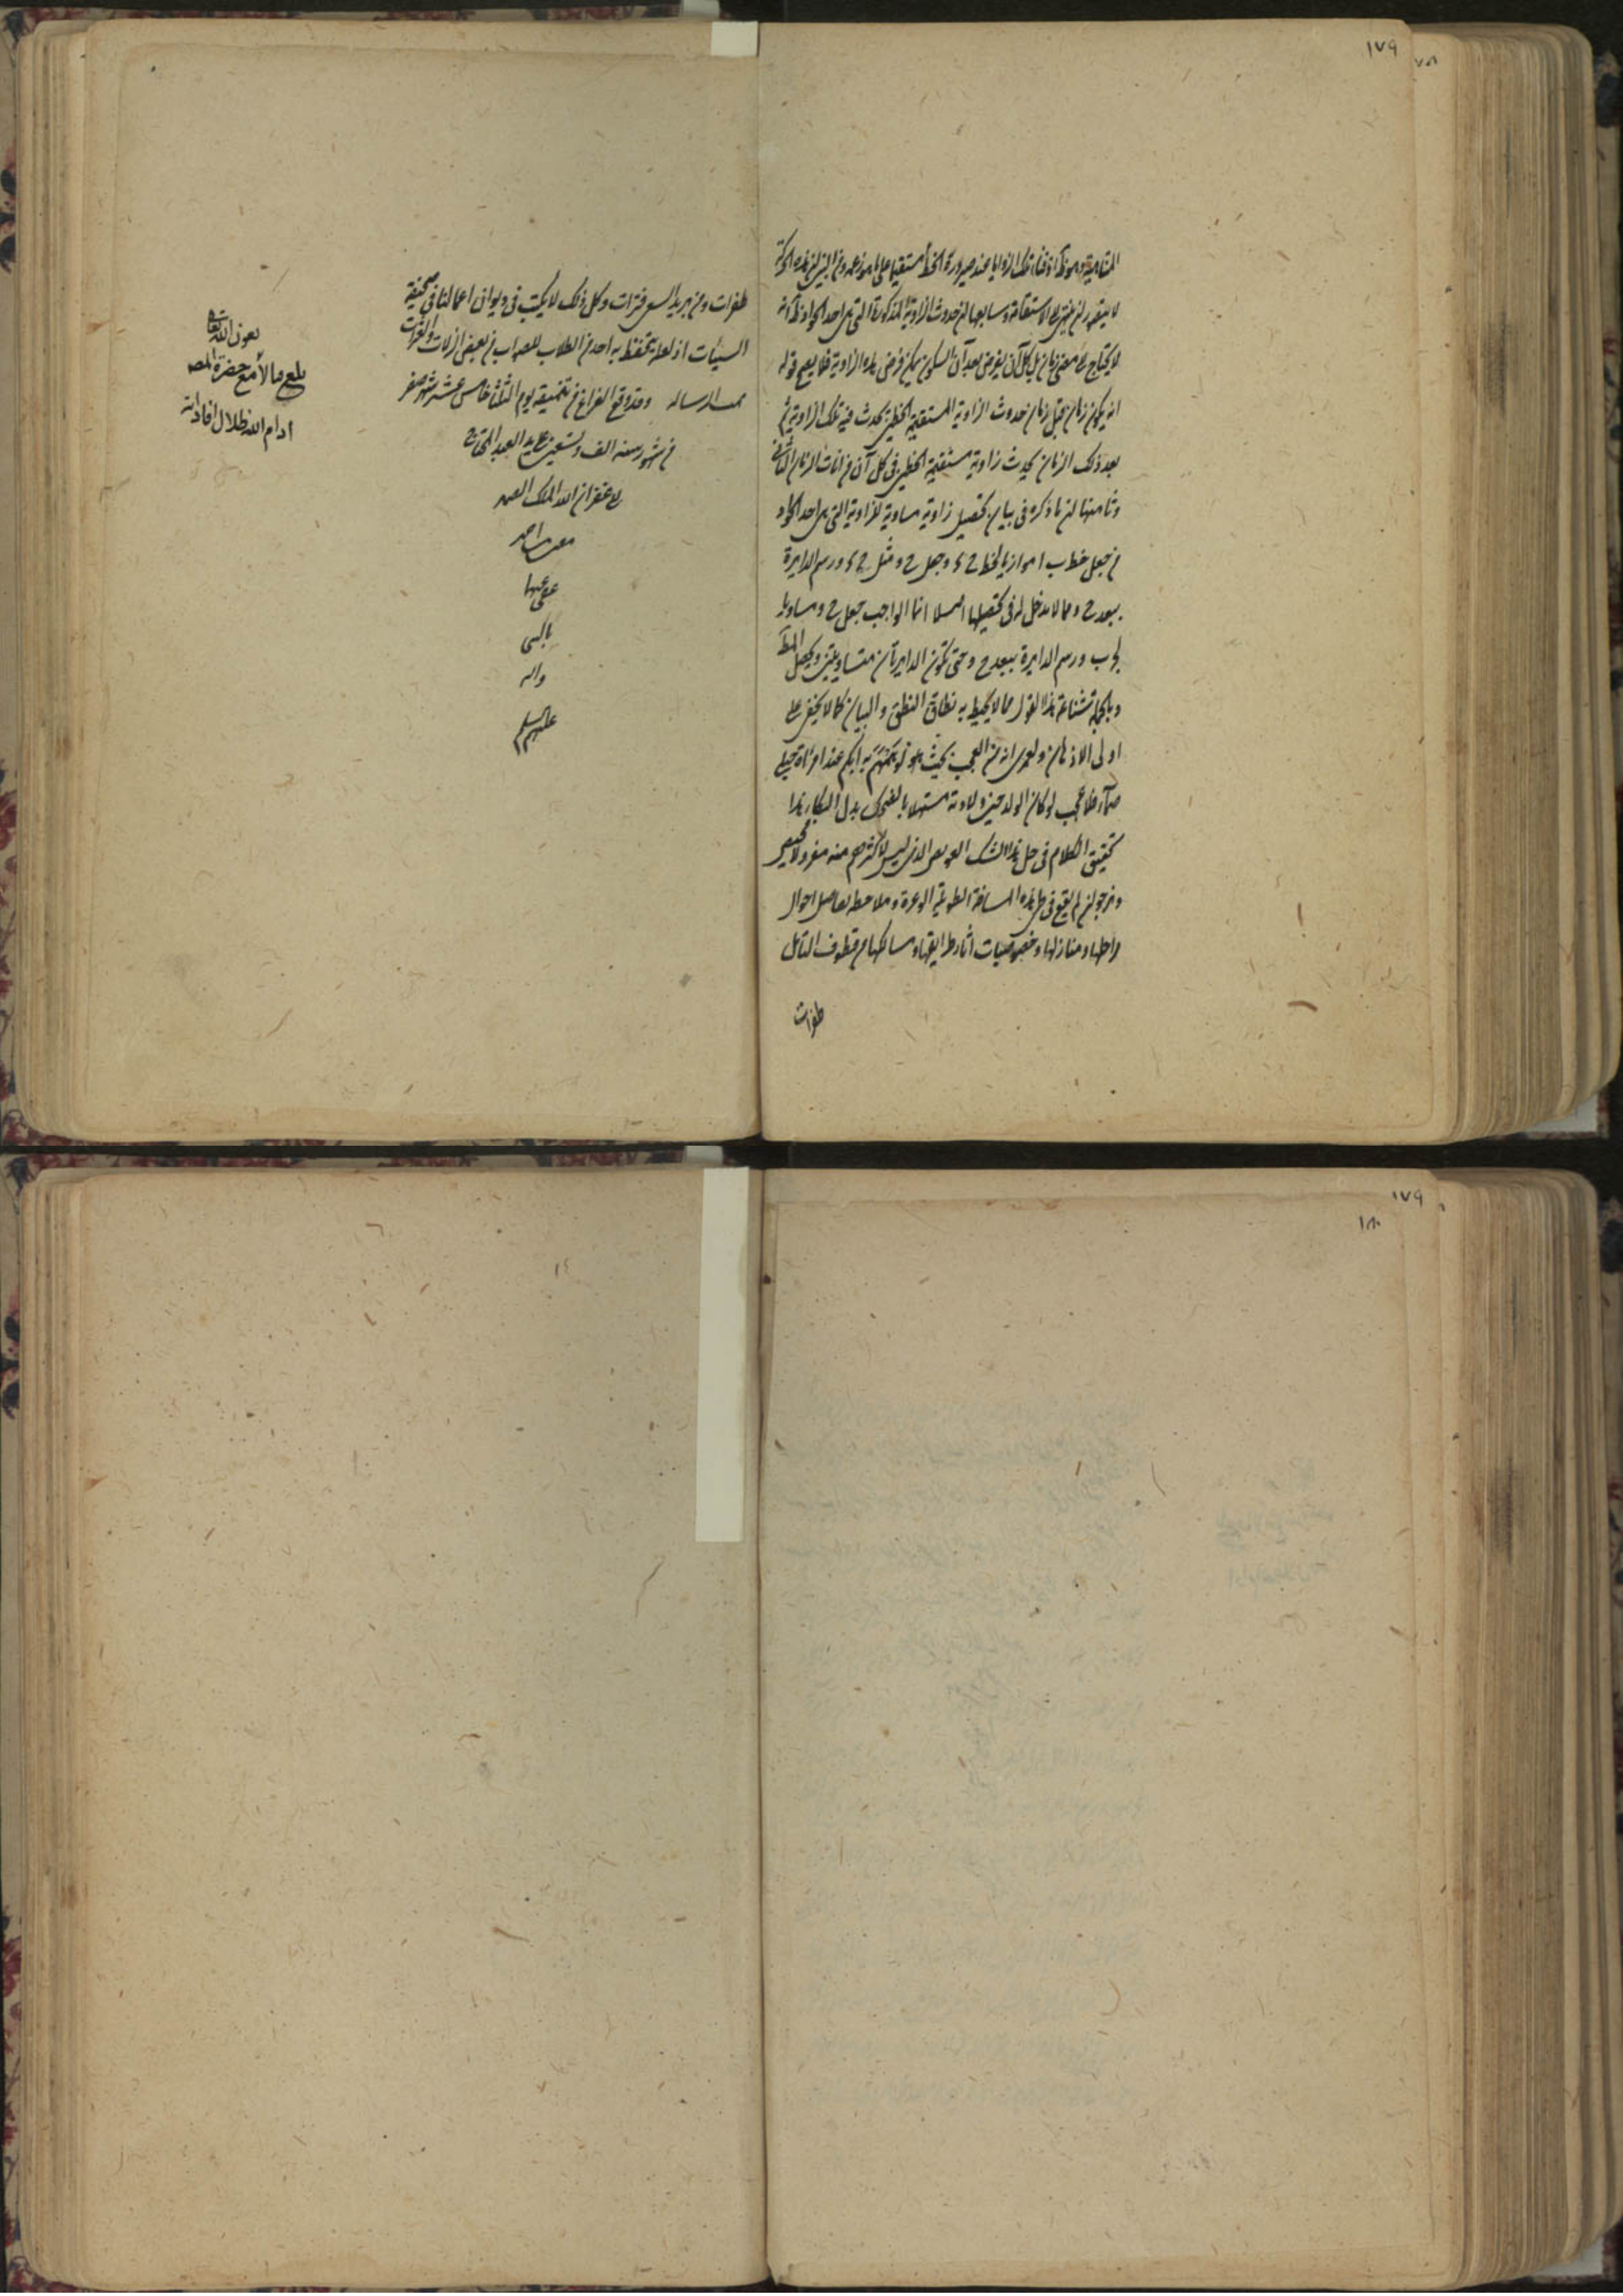 ١٧٩
لا يتصور ان ينتهى الى الاستقامة وسابعها ان حدوث الزاوية المذكورة التى هى احد الحواد
لا يحتاج الى مضى زمان بل كل آن يفرض بعد آن السكون يمكن فرض هذه الزاوية فلا يصح قوله
انه يكون زمان قبل زمان حدوث الزاوية المستقيمة الخطين يحدث فيه تلك الزاوية ثم
بعد ذلك الزمان يحدث زاوية مستقيمة الخطين فى كل آن من آنات الزمان الثانى
وثامنها ان ما ذكره فى بيان تحصيل زاوية مساوية للزاوية التى هى احد الحواد
من جعل خط ب ا موازيا لخط ح ء وجعل ح و مثل ح ء ورسم الدايرة
ببعد ح و مما لا مدخل له فى تحصيلها اصلا انما الواجب جعل ح و مساويا
لـ ب ورسم الدايرة ببعد ح و حتى تكون الدايرتان متساويتين ويحصل المط
وبالجملة شناعة هذا القول مما لا يحيط به نطاق النطق والبيان كما لا يخفى على
اولى الاذهان ولعمرى انه من العجب بحيث
صماء فلا عجب لو كان الولد حين ولادته مستهلا بالضحك بدل البكاء هذا
تحقيق الكلام فى حل هذا الشك العويص الذى ليس لاكثرهم منه مفر ولا محيص
ونرجو ان لم يقع فى طى هذه المسافة الطويلة الوعرة وملاحظة تفاصيل احوال
مراحلها ومنازلها وخصوصيات آثار طرايقها ومسالكها من قطوف التأمل
طفرات
طفرات ومن بريد السعى فترات وكل ذلك لا يكتب فى ديوان اعمالنا فى صحيفة
السيئات اذ لعله يتحفظ به احد من الطلاب للصواب من بعض الزلات والعثرات
تمت الرسالة وقد وقع الفراغ من تنميقه يوم الثلثا خامس عشر شهر صفر
من شهور سنه الف وتسعين على يد العبد المحتاج
الى غفران الله الملك الصمد
احمد
عفى عنهما
بالنبى
واله
عليهم السلم
بعون الله تعالى
بلغ مقابلا مع حضرة المص
ادام الله ظلال افاداته
١٧٩
١٨٠